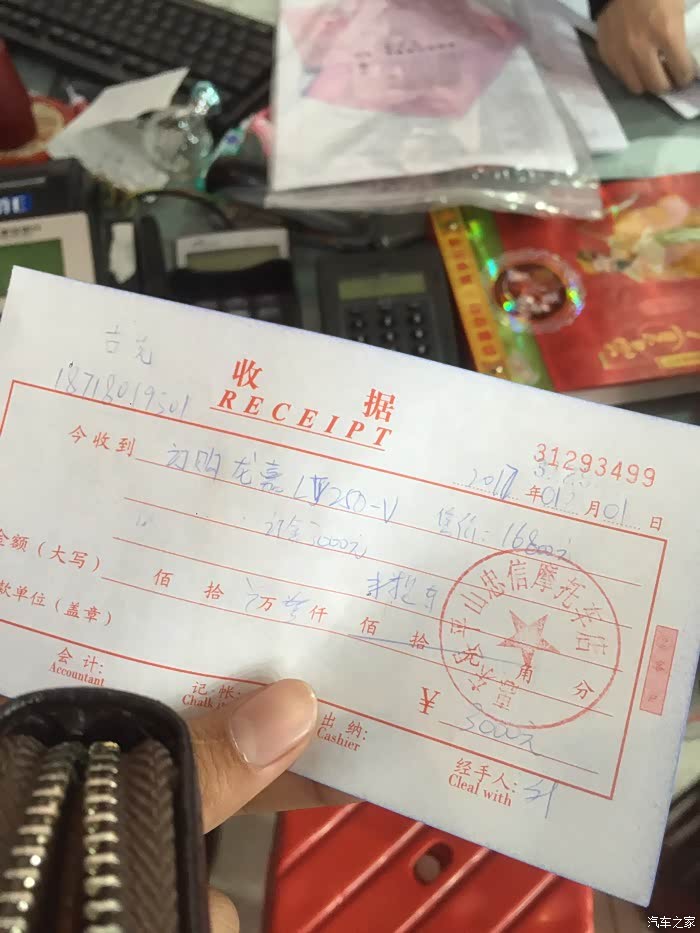 古兄
18718019501
收据
RECEIPT
31293499
2017年01月01日
今收到 订购龙嘉LV250-V 售价:16800元
订金3000元
金额(大写) 佰 拾 万 仟 佰 拾 元 角 分
款单位(盖章)
¥ 3000元
会计:
Accountant
记帐:
出纳:
Cashier
经手人:
Cleal with
汽车之家